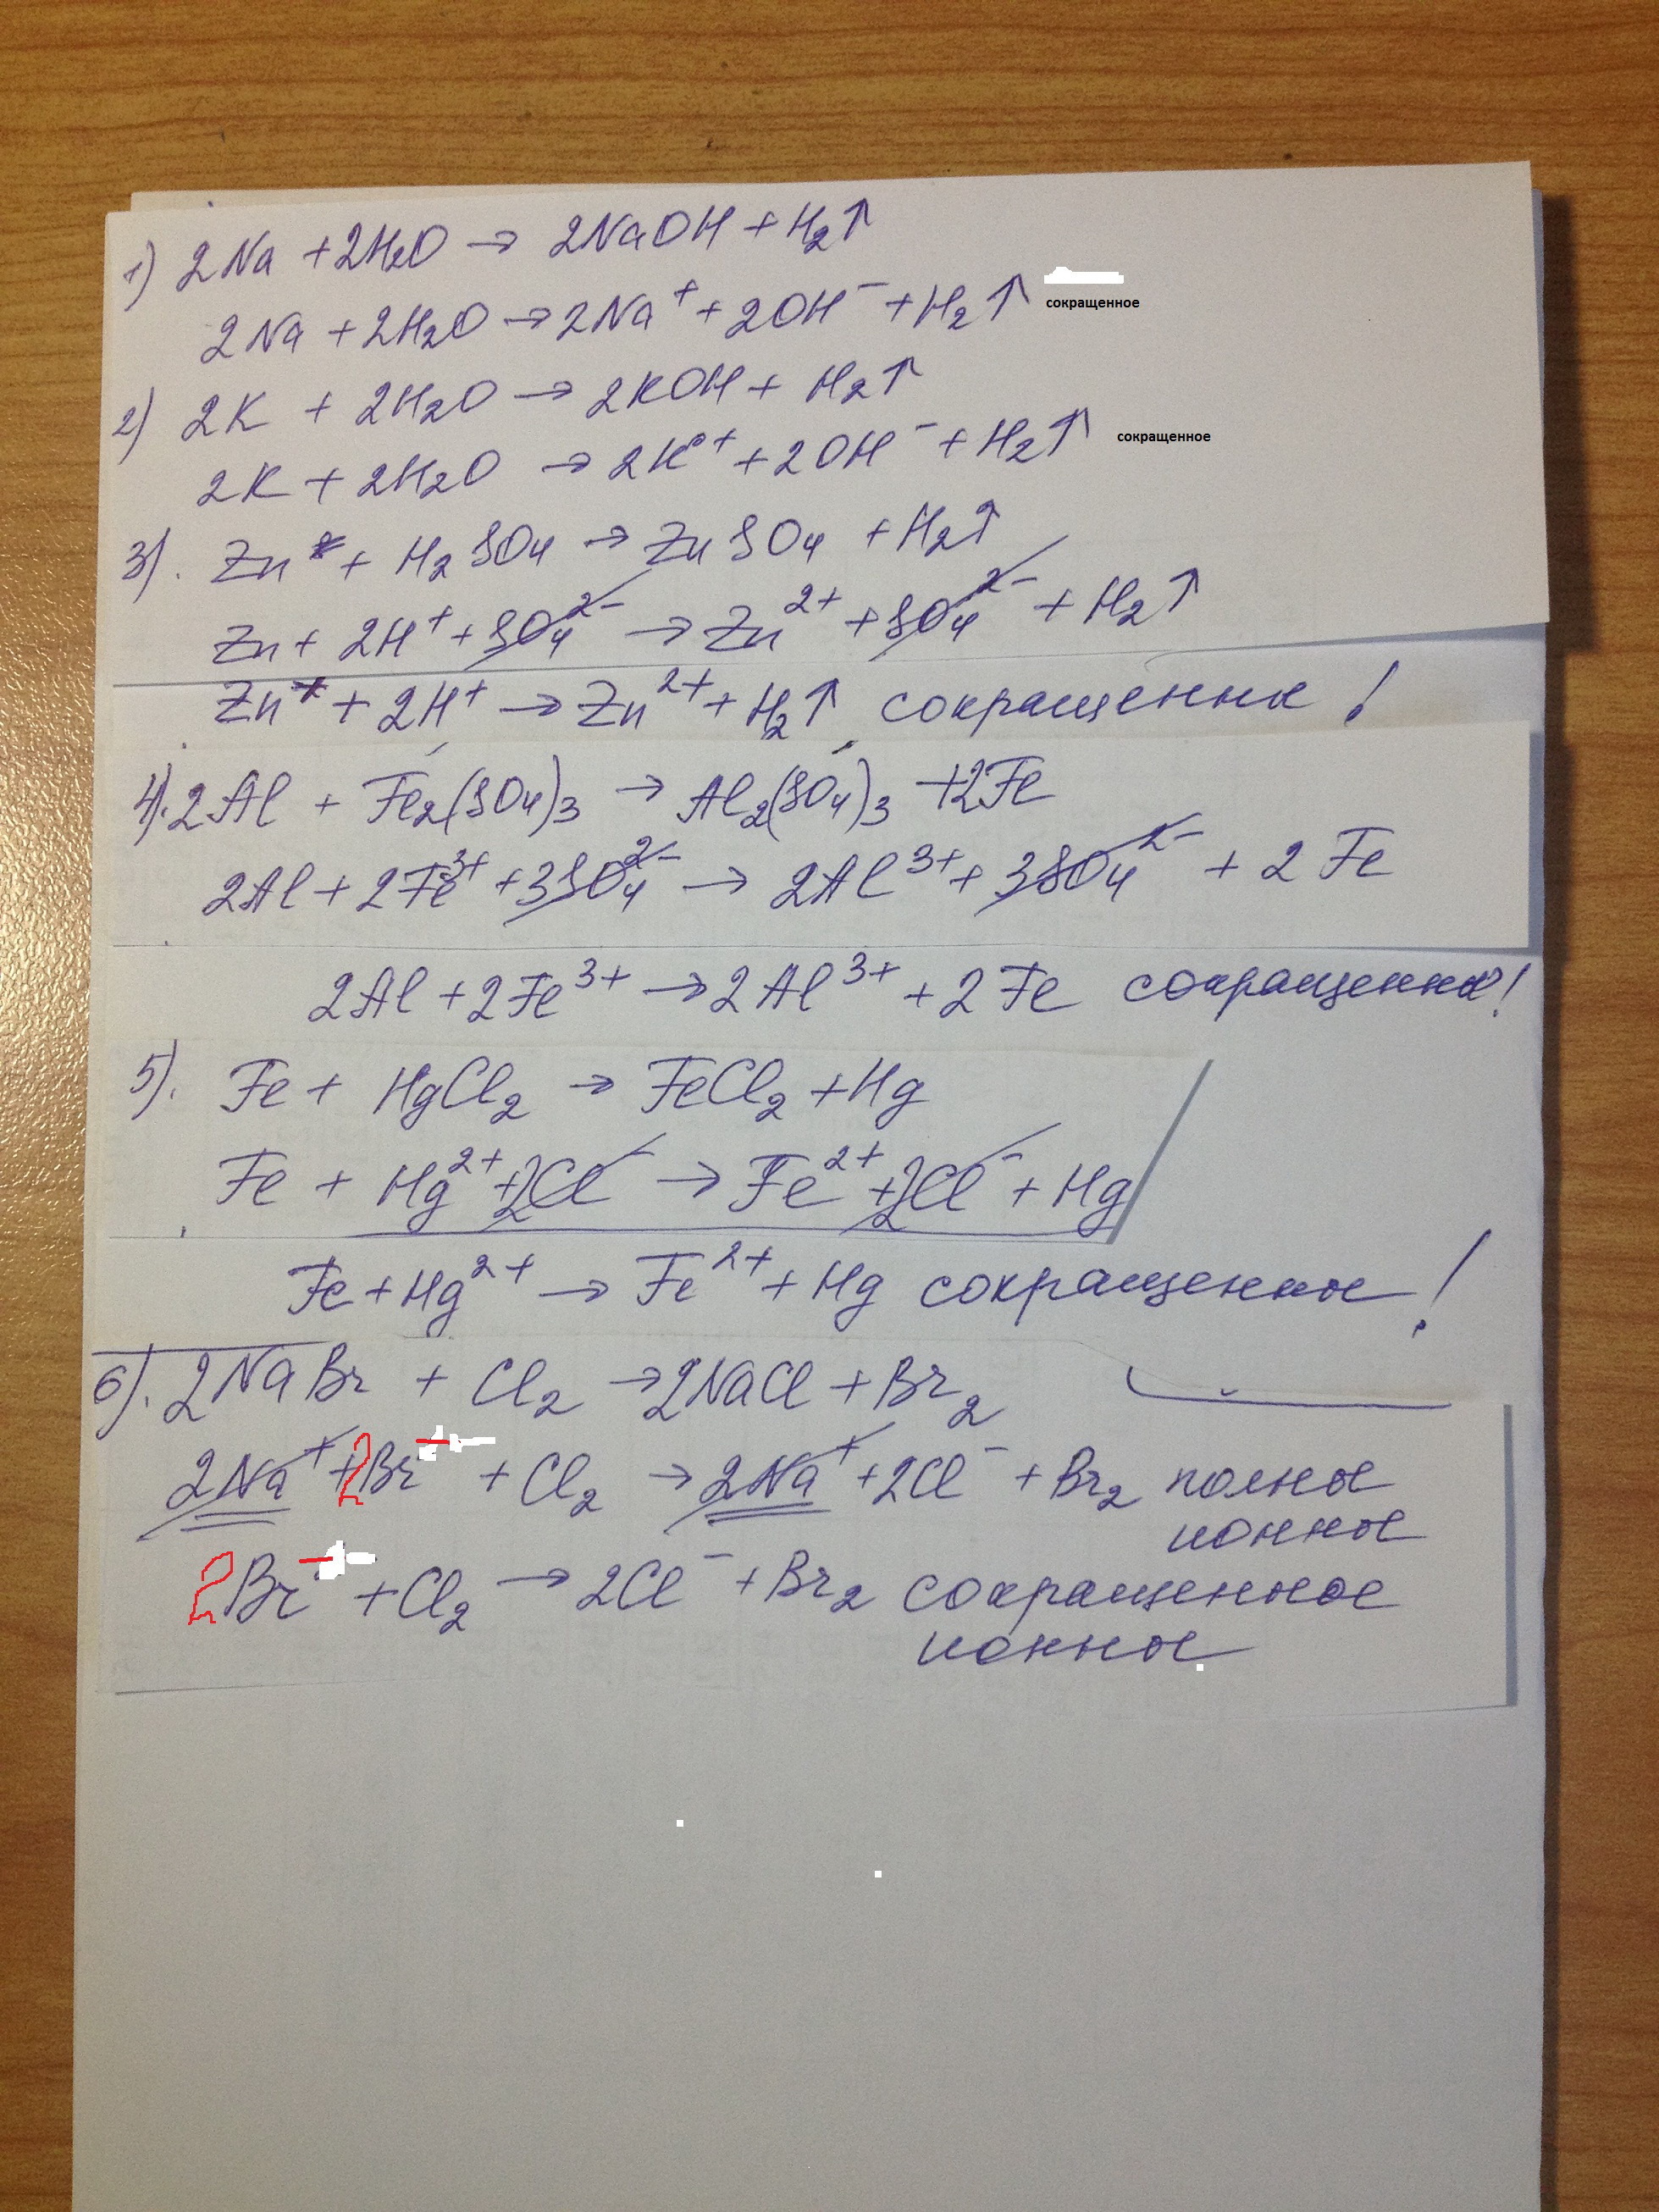 1) 2Na + 2H₂O → 2NaOH + H₂↑
2Na + 2H₂O → 2Na⁺ + 2OH⁻ + H₂↑ сокращенное
2) 2K + 2H₂O → 2KOH + H₂↑
2K + 2H₂O → 2K⁺ + 2OH⁻ + H₂↑ сокращенное
3). Zn + H₂SO₄ → ZnSO₄ + H₂↑
Zn + 2H⁺ + SO₄²⁻ → Zn²⁺ + SO₄²⁻ + H₂↑
Zn + 2H⁺ → Zn²⁺ + H₂↑ !
4). 2Al + Fe₂(SO₄)₃ → Al₂(SO₄)₃ + 2Fe
2Al + 2Fe³⁺ + 3SO₄²⁻ → 2Al³⁺ + 3SO₄²⁻ + 2Fe
2Al + 2Fe³⁺ → 2Al³⁺ + 2Fe !
5). Fe + HgCl₂ → FeCl₂ + Hg
Fe + Hg²⁺ + 2Cl⁻ → Fe²⁺ + 2Cl⁻ + Hg
Fe + Hg²⁺ → Fe²⁺ + Hg сокращенное !
6). 2NaBr + Cl₂ → 2NaCl + Br₂
2Na⁺ + 2Br⁻ + Cl₂ → 2Na⁺ + 2Cl⁻ + Br₂ полное
ионное
2Br⁻ + Cl₂ → 2Cl⁻ + Br₂ сокращенное
ионное